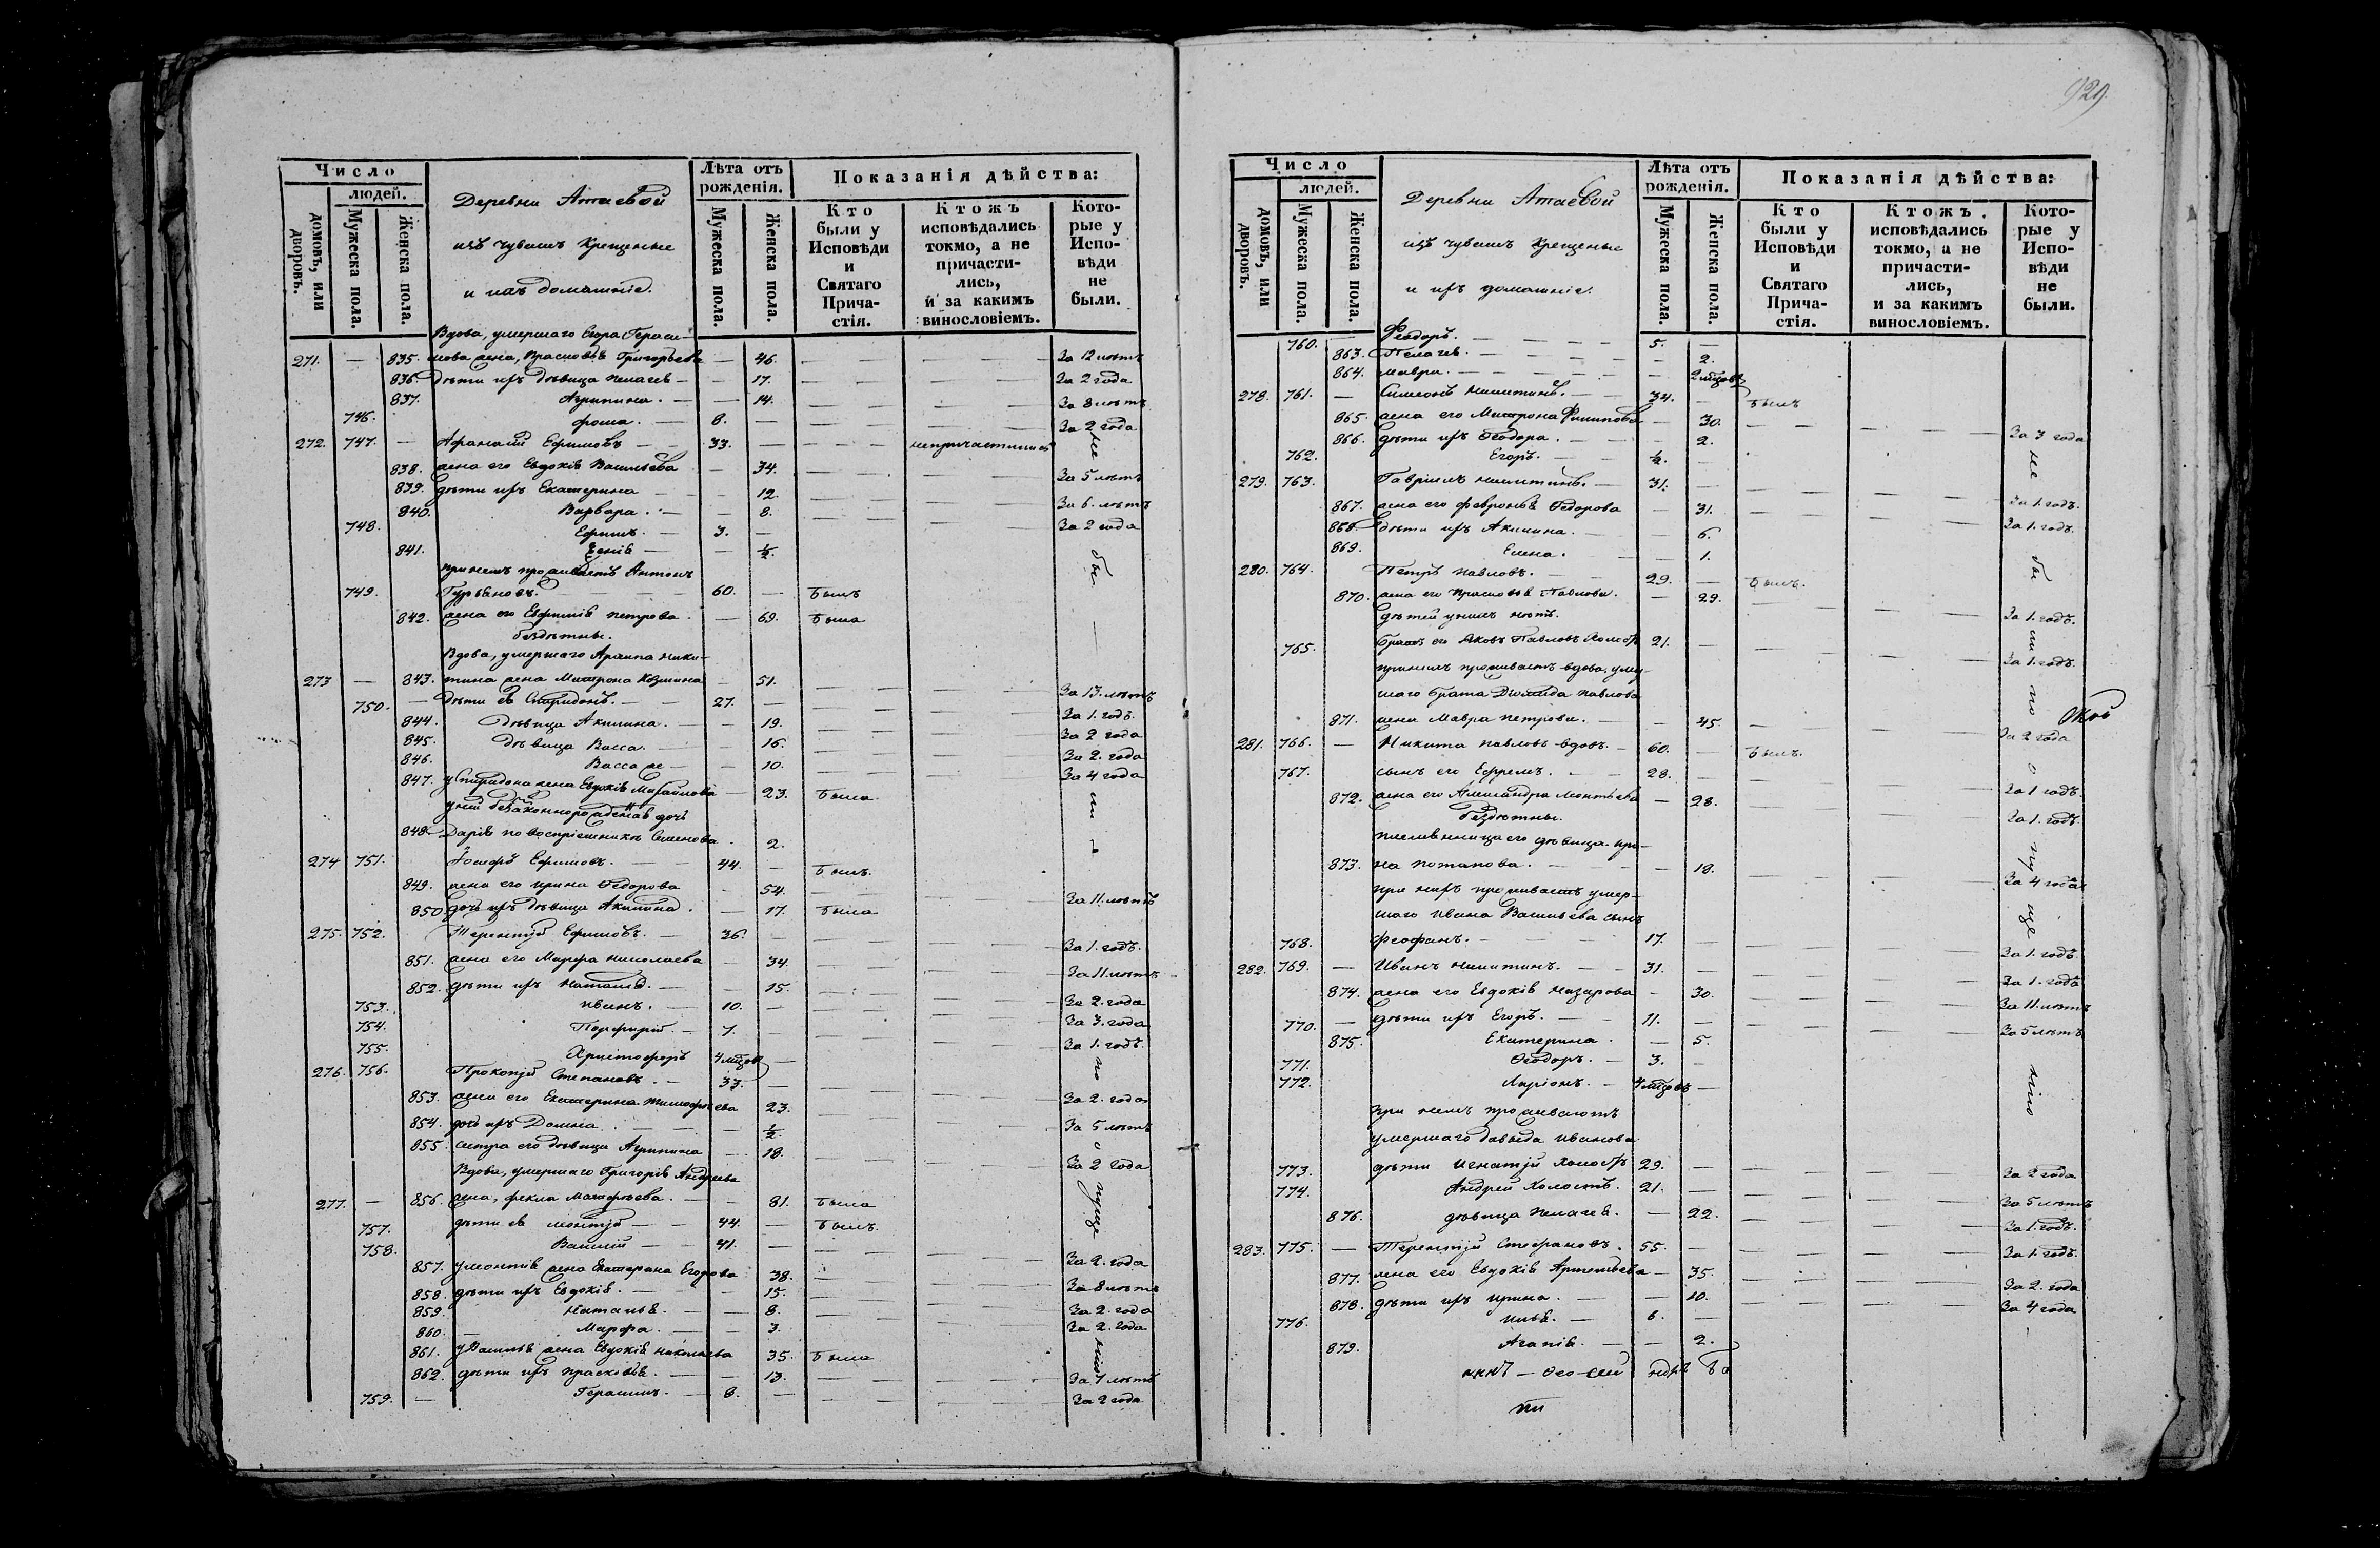 Число
людей.
домовъ, или дворовъ.
Мужеска пола.
Женска пола.
Деревни Атаевой
изъ чувашъ крещеные
и ихъ домашніе.
Лѣта отъ рожденія.
Мужеска пола.
Женска пола.
Показанія дѣйства:
Кто были у Исповѣди и Святаго Прича-стія.
Ктожъ исповѣдались токмо, а не причасти-лись, и за какимъ винословіемъ.
Кото-рые у Испо-вѣди не были.
Вдова, умершаго Егора Гераси-
271. — 835. мова жена, Прасковья Григорьева — 46. За 12 лѣтъ
836. дѣти ихъ дѣвица Пелагея — 17. За 2 года
837. Агрипина. — 14. За 8 лѣтъ
746. Фома. — 8. За 2 года
272. 747. — Афанасій Ефимовъ — 33. —
838. жена его Евдокія Васильева — 34. За 5 лѣтъ
839. дѣти ихъ Екатерина — 12. За 6. лѣтъ
840. Варвара. — 8. За 2 года
748. Ефимъ. — 3. —
841. — ½.
при немъ проживаетъ Антонъ
749. Гурьяновъ. 60. — былъ
842. жена его Евфимія Петрова. — 69. была
бездѣтны.
Вдова, умершаго Архипа Ники-
273 — 843. тина жена Матрона Козмина — 51. За 13. лѣтъ
750. — дѣти ея Спиридонъ. — 27. — За 1. годъ.
844. дѣвица Акилина. — 19. За 2 года
845. дѣвица Васса. — 16. За 2. года
846. Васса же — 10. За 4 года
847. у Спиридона жена Евдокія Михайлова — 23. была
у ней беззаконнорожденная дочь
848. Дарія по воспріемникѣ Семенова. 2.
274 751. Іосифъ Ефимовъ. — 44. — былъ.
849. жена его Ирина Ѳедорова — 54. За 11. лѣтъ
850. дочь ихъ дѣвица Акилина. — 17. была
275. 752. Терентій Ефимовъ. — 36. За 1. годъ.
851. жена его Марфа Николаева — 34. За 11. лѣтъ
852. дѣти ихъ Наталія. — 15. За 2. года
753. Иванъ. — 10. — За 3. года
754. Порфирій. — 7. — За 1. годъ.
755. Христофоръ 4 мѣсцов —
276. 756. Прокопій Степановъ. — 33. — За 2. года
853. жена его Екатерина Тимофеева 23. За 5 лѣтъ
854. дочь ихъ Домна. — ½.
855. сестра его дѣвица Агрипина — 18. За 2 года
Вдова, умершаго Григорія Андреева
277. — 856. жена, Фекла Матфеева. — 81. была
757. дѣти ея Монтій — 44. — былъ.
758. Василій — 41. — За 2. года
857. у Монтія жена Екатерина Егорова 38. За 8 лѣтъ
858. дѣти ихъ Евдокія. — 15. За 2. года
859. Наталья. — 8. За 2. года
860. Марфа. — 3.
861. у Василья жена Евдокія Николаева 35. была
862. дѣти ихъ Прасковья. — 13. За 7 лѣтъ
759. — Герасимъ. — 8. — За 2 года
929.
Число
людей.
домовъ, или дворовъ.
Мужеска пола.
Женска пола.
Деревни Атаевой
изъ чувашъ крещеные
и ихъ домашніе.
Лѣта отъ рожденія.
Мужеска пола.
Женска пола.
Показанія дѣйства:
Кто были у Исповѣди и Святаго Прича-стія.
Ктожъ исповѣдались токмо, а не причасти-лись, и за какимъ винословіемъ.
Кото-рые у Испо-вѣди не были.
760. — Феодоръ. — 5. —
863. Пелагея. — 2.
864. Мавра. — 2 мѣсцовъ
278. 761. — Симеонъ Никитинъ. — 34. — былъ
865. жена его Матрона Филипова — 30. За 3 года
866. дѣти ихъ Ѳеодора. — 2.
762. Егоръ. — ½. —
279. 763. Гавріилъ Никитинъ. — 31. — За 1. годъ.
867. жена его Февронья Ѳедорова — 31. За 1. годъ.
868. дѣти ихъ Акилина. — 6.
869. Елена. — 1.
280. 764. Петръ Павловъ. — 29. — былъ.
870. жена его Прасковья Павлова. — 29. За 1. годъ.
дѣтей у нихъ нѣтъ.
765. братъ его Яковъ Павловъ холостъ 21. — За 1. годъ.
при нихъ проживаетъ вдова, умер-
шаго брата Павлова
871. жена Мавра Петрова. — 45. За 2 года
281. 766. — Никита Павловъ вдовъ. — 60. — былъ.
767. сынъ его Ефремъ. — 28. — За 1 годъ.
872. жена его Александра Монтьева — 28. За 1. годъ.
бездѣтны.
племянница его дѣвица Ири-
873. на Потапова. — 18. За 4 года
при нихъ проживаетъ умер-
шаго Ивана Васильева сынъ
768. Феофанъ. — 17. — За 1. годъ.
282. 769. — Иванъ Никитинъ. — 31. — За 1. годъ
874. жена его Евдокія Назарова — 30. За 11. лѣтъ
770. — дѣти ихъ Егоръ. — 11. — За 5 лѣтъ
875. Екатерина. — 5.
771. Ѳеодоръ. — 3. —
772. Ларіонъ. — 4 мѣсцовъ —
при немъ проживаютъ
умершаго Давыда Иванова
773. дѣти Игнатій холостъ 29. — За 2 года
774. Андрей холостъ. 21. — За 5 лѣтъ
876. дѣвица Пелагея. — 22. За 1. годъ.
283. 775. — Терентій Стефановъ. 55. — За 1. годъ.
877. жена его Евдокія Артемьева — 35. За 2. года
878. дѣти ихъ Ирина. — 10. За 4 года
776. Илья. — 6. —
879. Агапія. — 2.